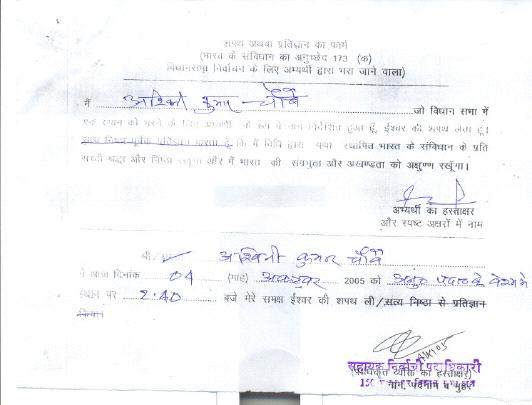 शपथ अथवा प्रतिज्ञान का फार्म
(भारत के संविधान का अनुच्छेद 173 (क)
विधानसभा निर्वाचन के लिए अभ्यर्थी द्वारा भरा जाने वाला)
मैं अश्विनी कुमार चौबे जो विधान सभा में
एक स्थान को भरने के लिए अभ्यर्थी के रूप में नाम निर्देशित हुआ हूँ, ईश्वर की शपथ लेता हूँ।
सत्य निष्ठा पूर्वक प्रतिज्ञान करता हूँ कि मैं विधि द्वारा यथा स्थापित भारत के संविधान के प्रति
सच्ची श्रद्धा और निष्ठा रखूंगा और मैं भारत की संप्रभुता और अखण्डता को अक्षुण्ण रखूँगा।
अभ्यर्थी का हस्ताक्षर
और स्पष्ट अक्षरों में नाम
श्री अश्विनी कुमार चौबे
ने आज दिनांक 04 (माह) अक्टूबर 2005 को के
स्थान पर 2.40 बजे मेरे समक्ष ईश्वर की शपथ ली/सत्य निष्ठा से प्रतिज्ञान
किया।
सहायक निर्वाची पदाधिकारी
(प्राधिकृत व्यक्ति का हस्ताक्षर)
नाम, पदनाम व मुहर